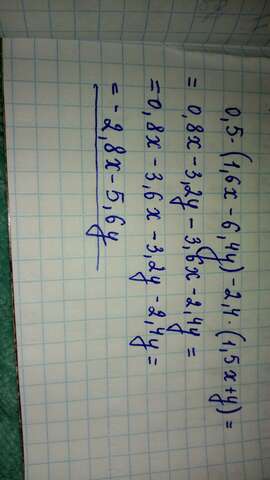 0,5·(1,6x-6,4y)-2,4·(1,5x+y)=
= 0,8x-3,2y-3,6x-2,4y=
=0,8x-3,6x-3,2y-2,4y=
=-2,8x-5,6y